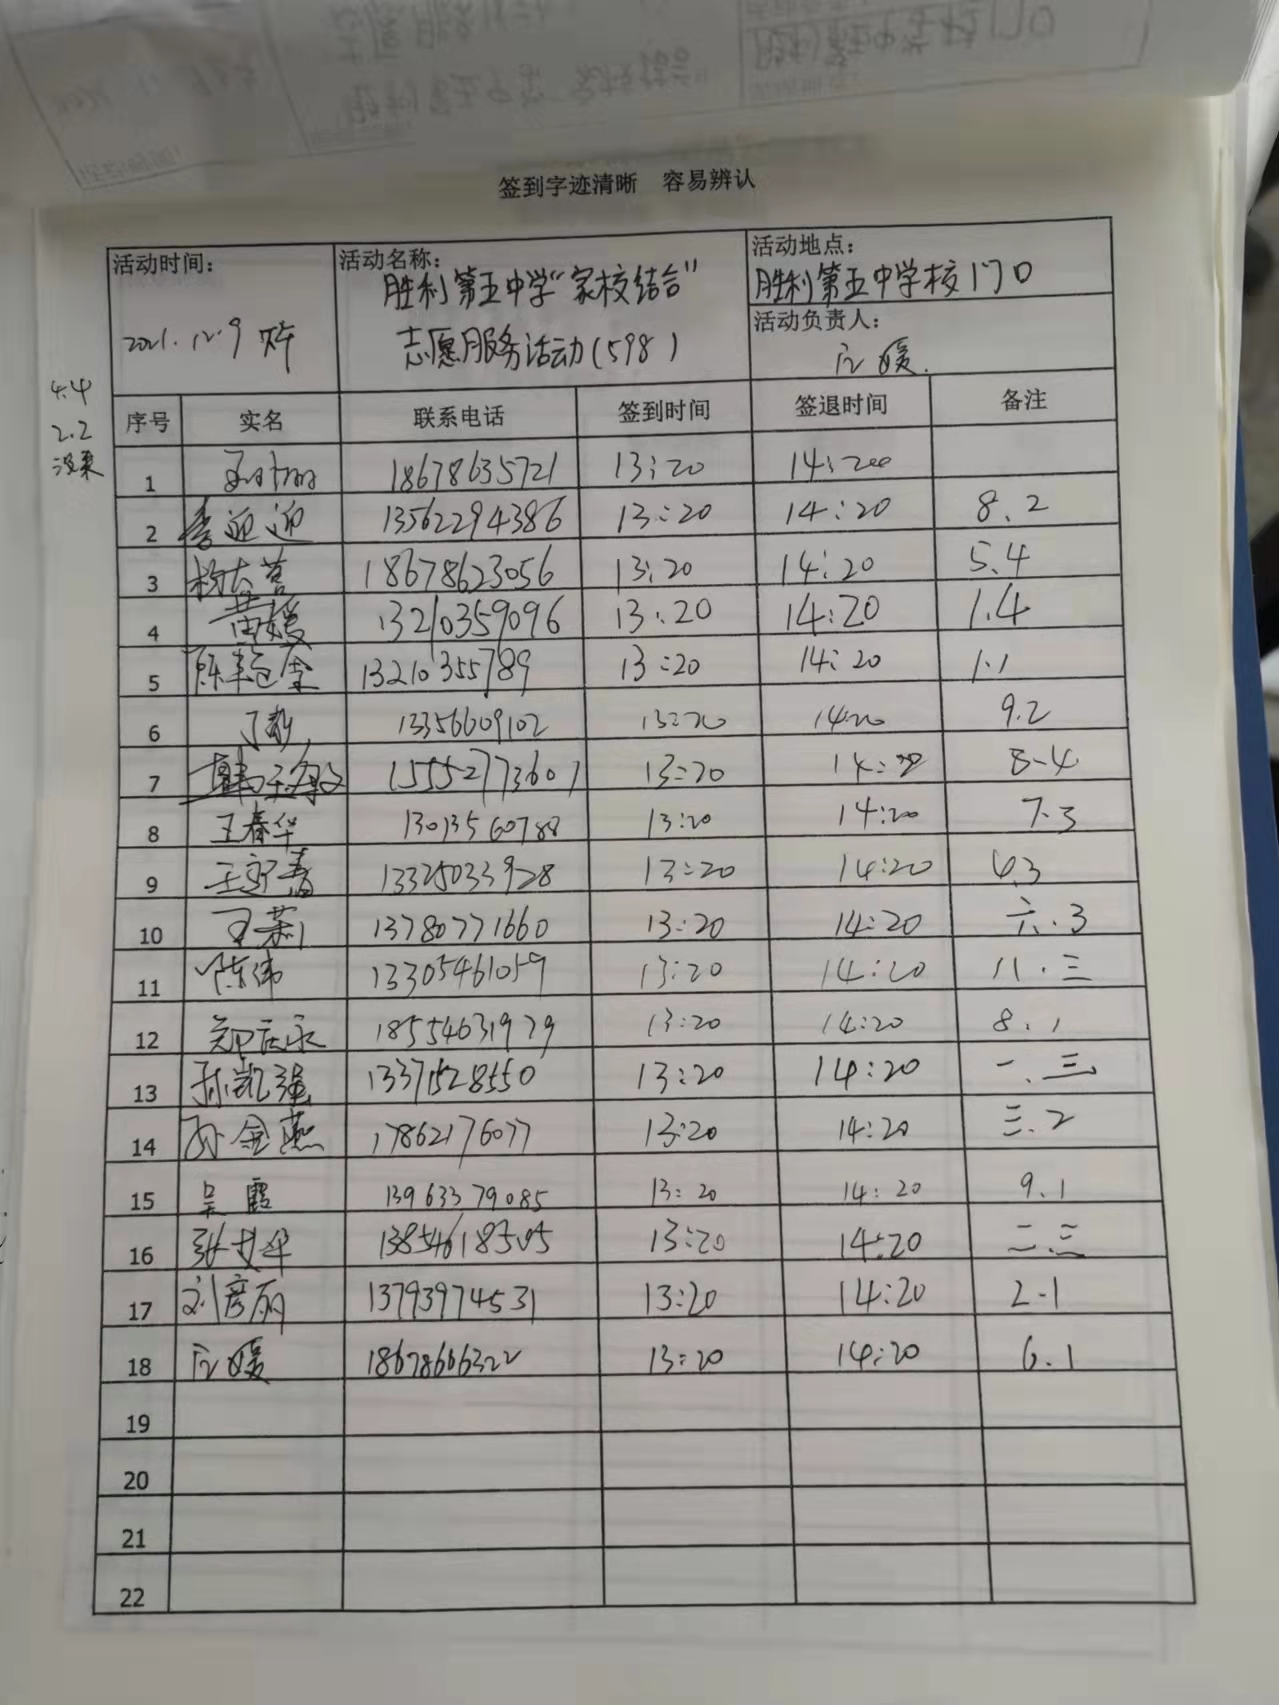 签到字迹清晰 容易辨认
活动时间:
2021.12.9
活动名称:
胜利第五中学"家校结合"
志愿服务活动(598)
活动地点:
胜利第五中学校门口
活动负责人:
应媛.
4.4
2.2
没来
序号 实名 联系电话 签到时间 签退时间 备注
1 18678635721 13:20 14:20
2 李迎迎 13562294386 13:20 14:20 8.2
3 18678623056 13:20 14:20 5.4
4 黄媛 13210359096 13:20 14:20 1.4
5 13210355789 13:20 14:20 1.1
6 丁敏 13356609102 13:20 14:20 9.2
7 15552773607 13:20 14:20 8-4
8 王春华 13013560788 13:20 14:20 7.3
9 13325033928 13:20 14:20 4.3
10 王莉 13780771660 13:20 14:20 六.3
11 陈伟 13305461059 13:20 14:20 八.三
12 郑庆永 18554631979 13:20 14:20 8.1
13 孙凯强 13371528550 13:20 14:20 一.三
14 孙金燕 17862176077 13:20 14:20 三.2
15 吴霞 13963379085 13:20 14:20 9.1
16 13854618505 13:20 14:20 二.三
17 刘彦丽 13793974531 13:20 14:20 2.1
18 应媛 18678666322 13:20 14:20 6.1
19
20
21
22